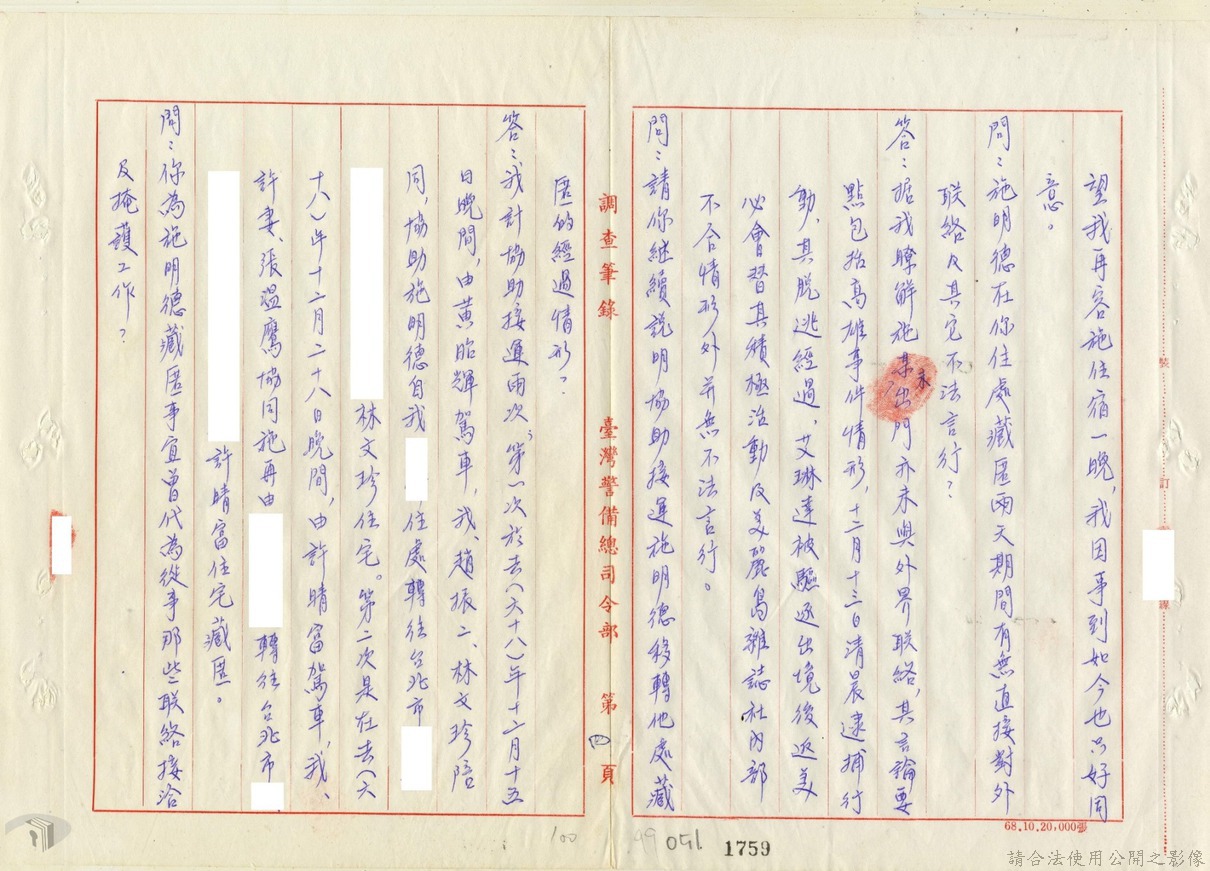 望我再容施住宿一晚，我因事到如今也只好同
意。
問：施明德在你住處藏匿兩天期間有無直接對外
联絡及其它不法言行？
答：据我瞭解施未出門亦未與外界联絡，其言論要
點包括高雄事件情形，十二月十三日清晨逮捕行
動，其脫逃經過，艾琳達被驅逐出境後返美
必會替其積極活動及美麗島雜誌社內部
不合情形外并無不法言行。
問：請你继續説明協助接運施明德移轉他處藏
調查筆錄 臺灣警備總司令部 第四頁
匿的經過情形？
答：我計協助接運兩次，第一次於去（六十八）年十二月十五
日晚間，由黄昭輝駕車，我、趙振二、林文珍陪
同，協助施明德自我 住處轉往台北市
林文珍住宅。第二次是在去（六
十八）年十二月二十八日晚間，由許晴富駕車，我、
許妻、張温鷹協同施再由 轉往台北市
許晴富住宅藏匿。
問：你為施明德藏匿事宜曾代為從事那些联絡接洽
及掩護工作？
裝 訂 線
68.10.20,000張
100
99
051
1759
請合法使用公開之影像